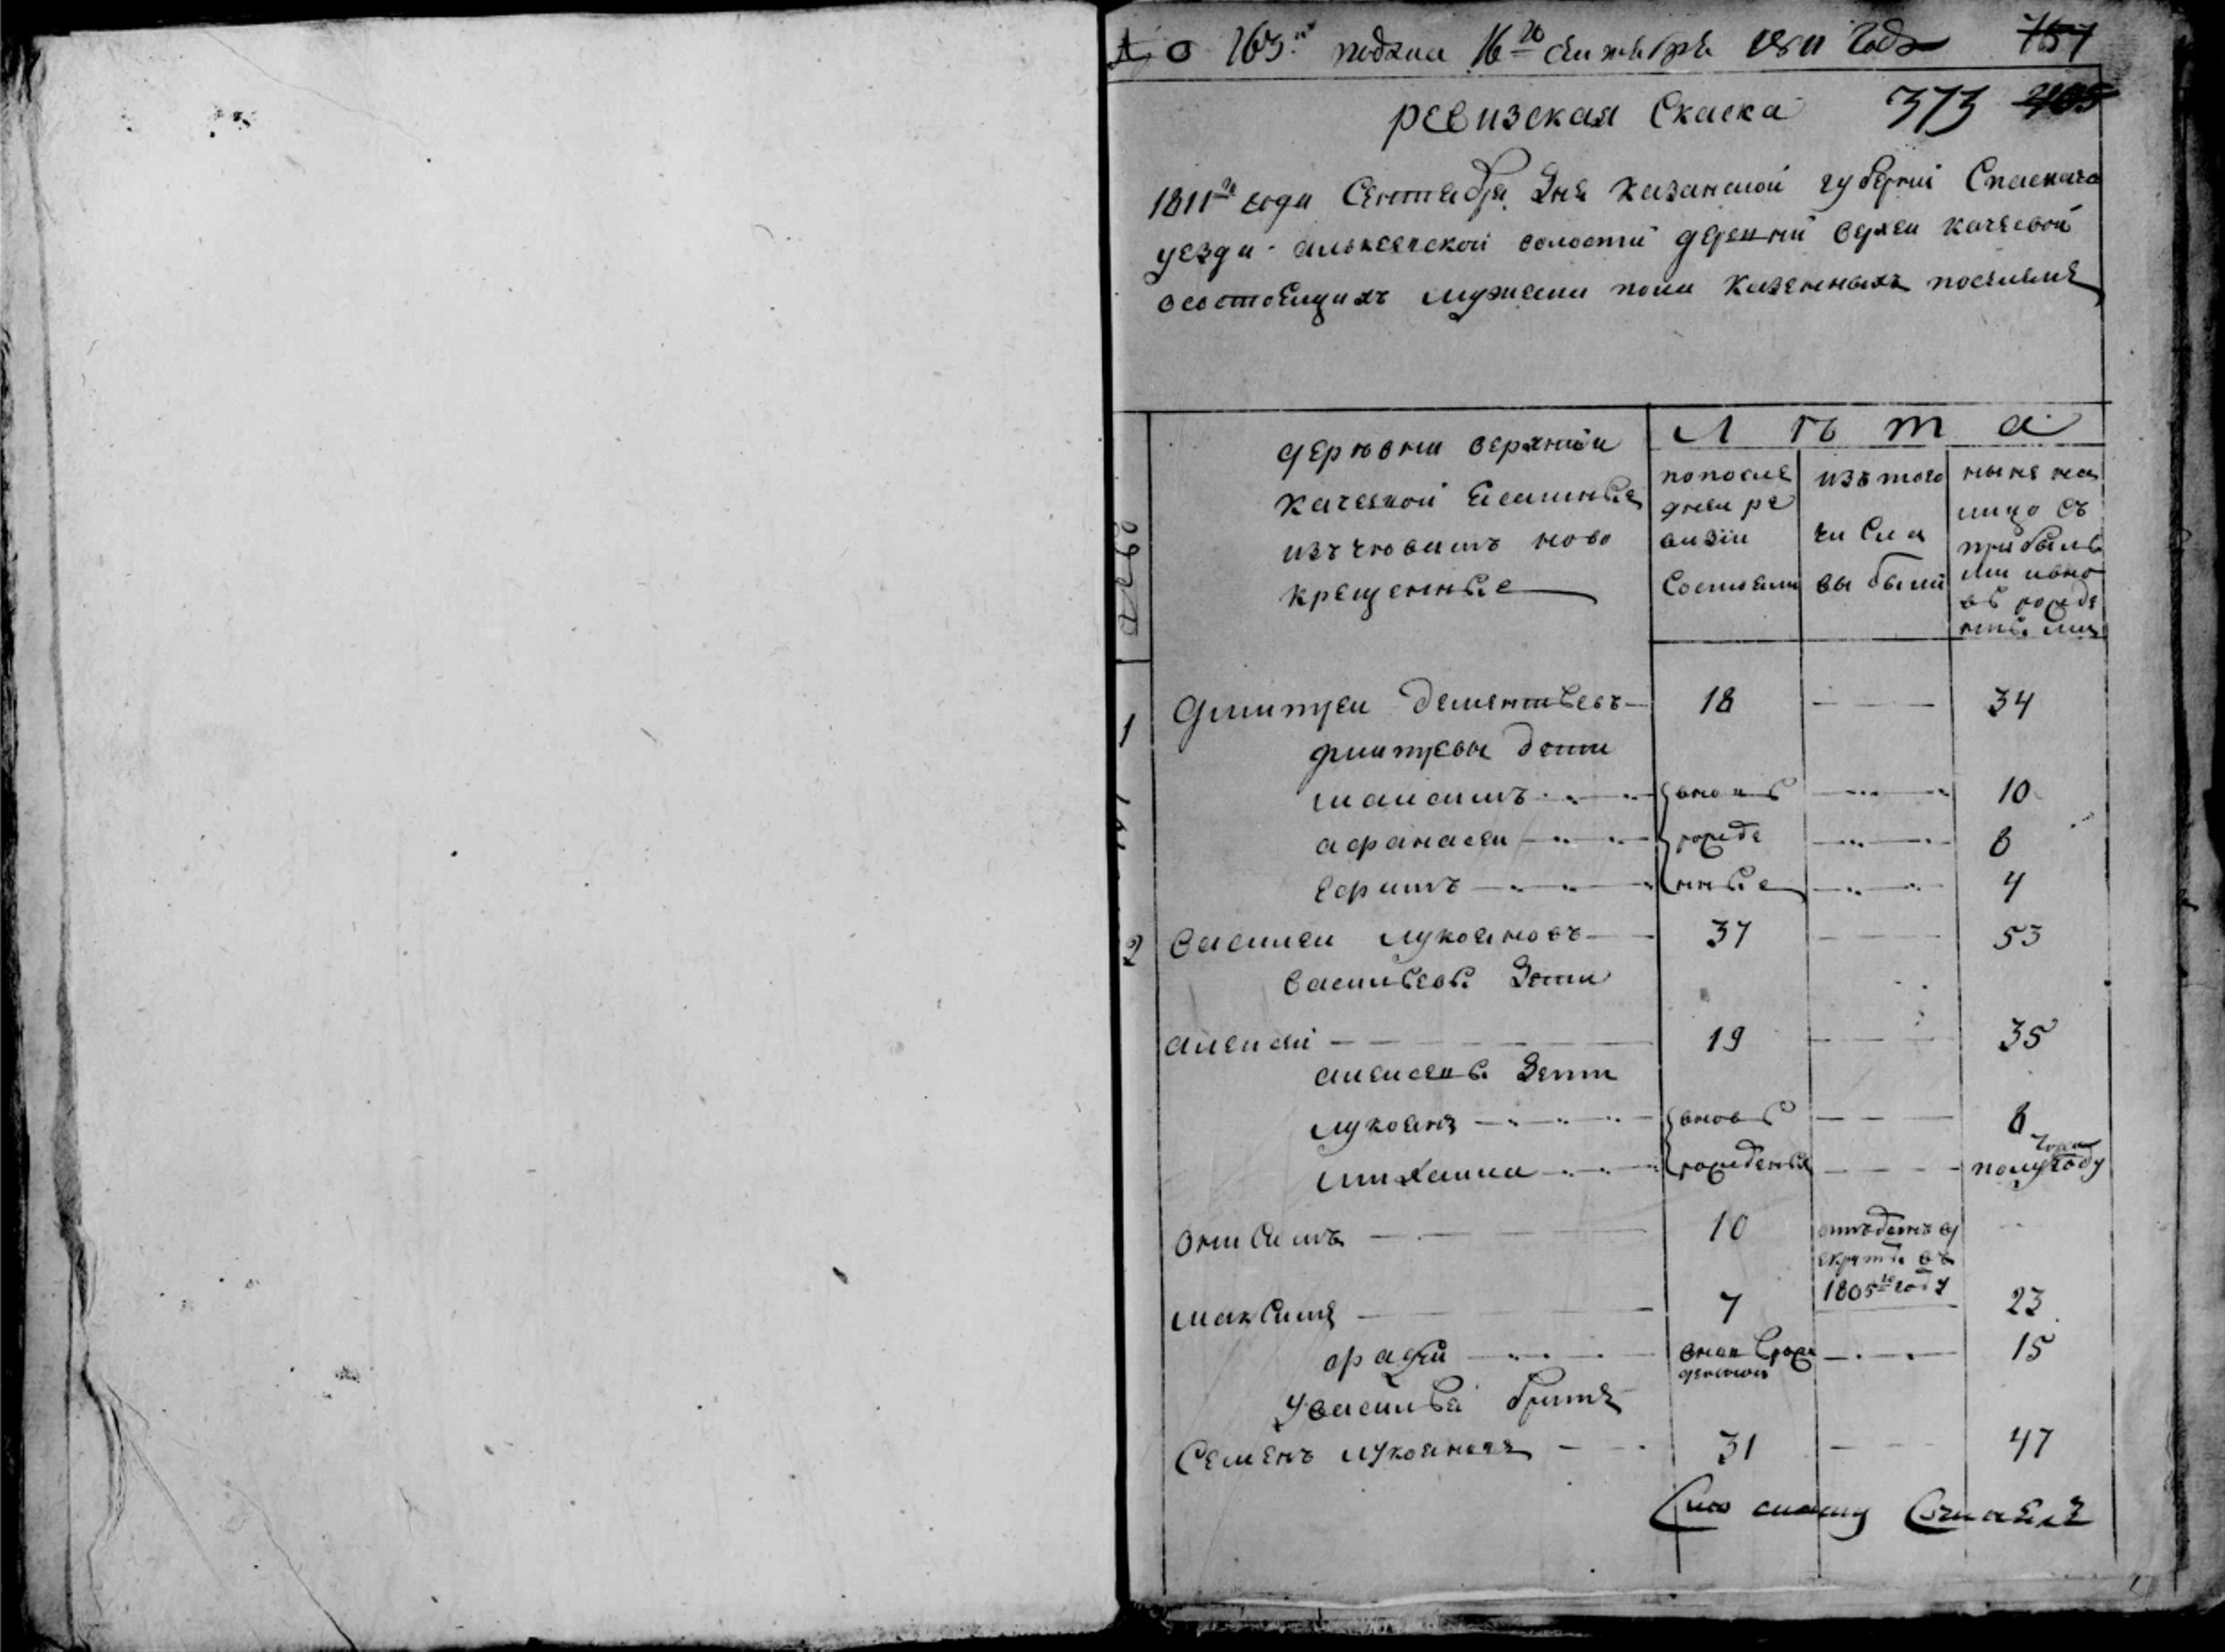 № 163й подана 16го сентября 1811 года 757
ревизская Скаска 373 405
1811го года Сентября дня казанской губернии Спаскаго
уезда алькеевской волости деревни верхей качеевой
о состоящихъ мужеска пола казенныхъ поселяне
Л ѣ т а
дерѣвни верхней
качеевой
изъ чювашъ ново
крещенные
по после
дней ре
визіи
Состояли
изъ того
чиСла
выбыли
ныне на
лицо съ
прибылы
ми и вно
вь рожде
нными
1 Дмитреи дементьевъ 18 34
дмитревы дети
максимъ вновь 10
афанасеи рожде 8
ефимъ нные 4
2 василеи лукояновъ 37 53
васильевы дети
алексеи 19 35
алексеевы дети
лукоянъ вновь 8
михаила рожденыя полугоду
ониСимъ 10 отъданъ въ
рекруты въ
1805м году
макСимъ 7 23
фадеи вновь рож 15
денной
у василья братъ
Семенъ лукояновъ 31 47
Сию скаску